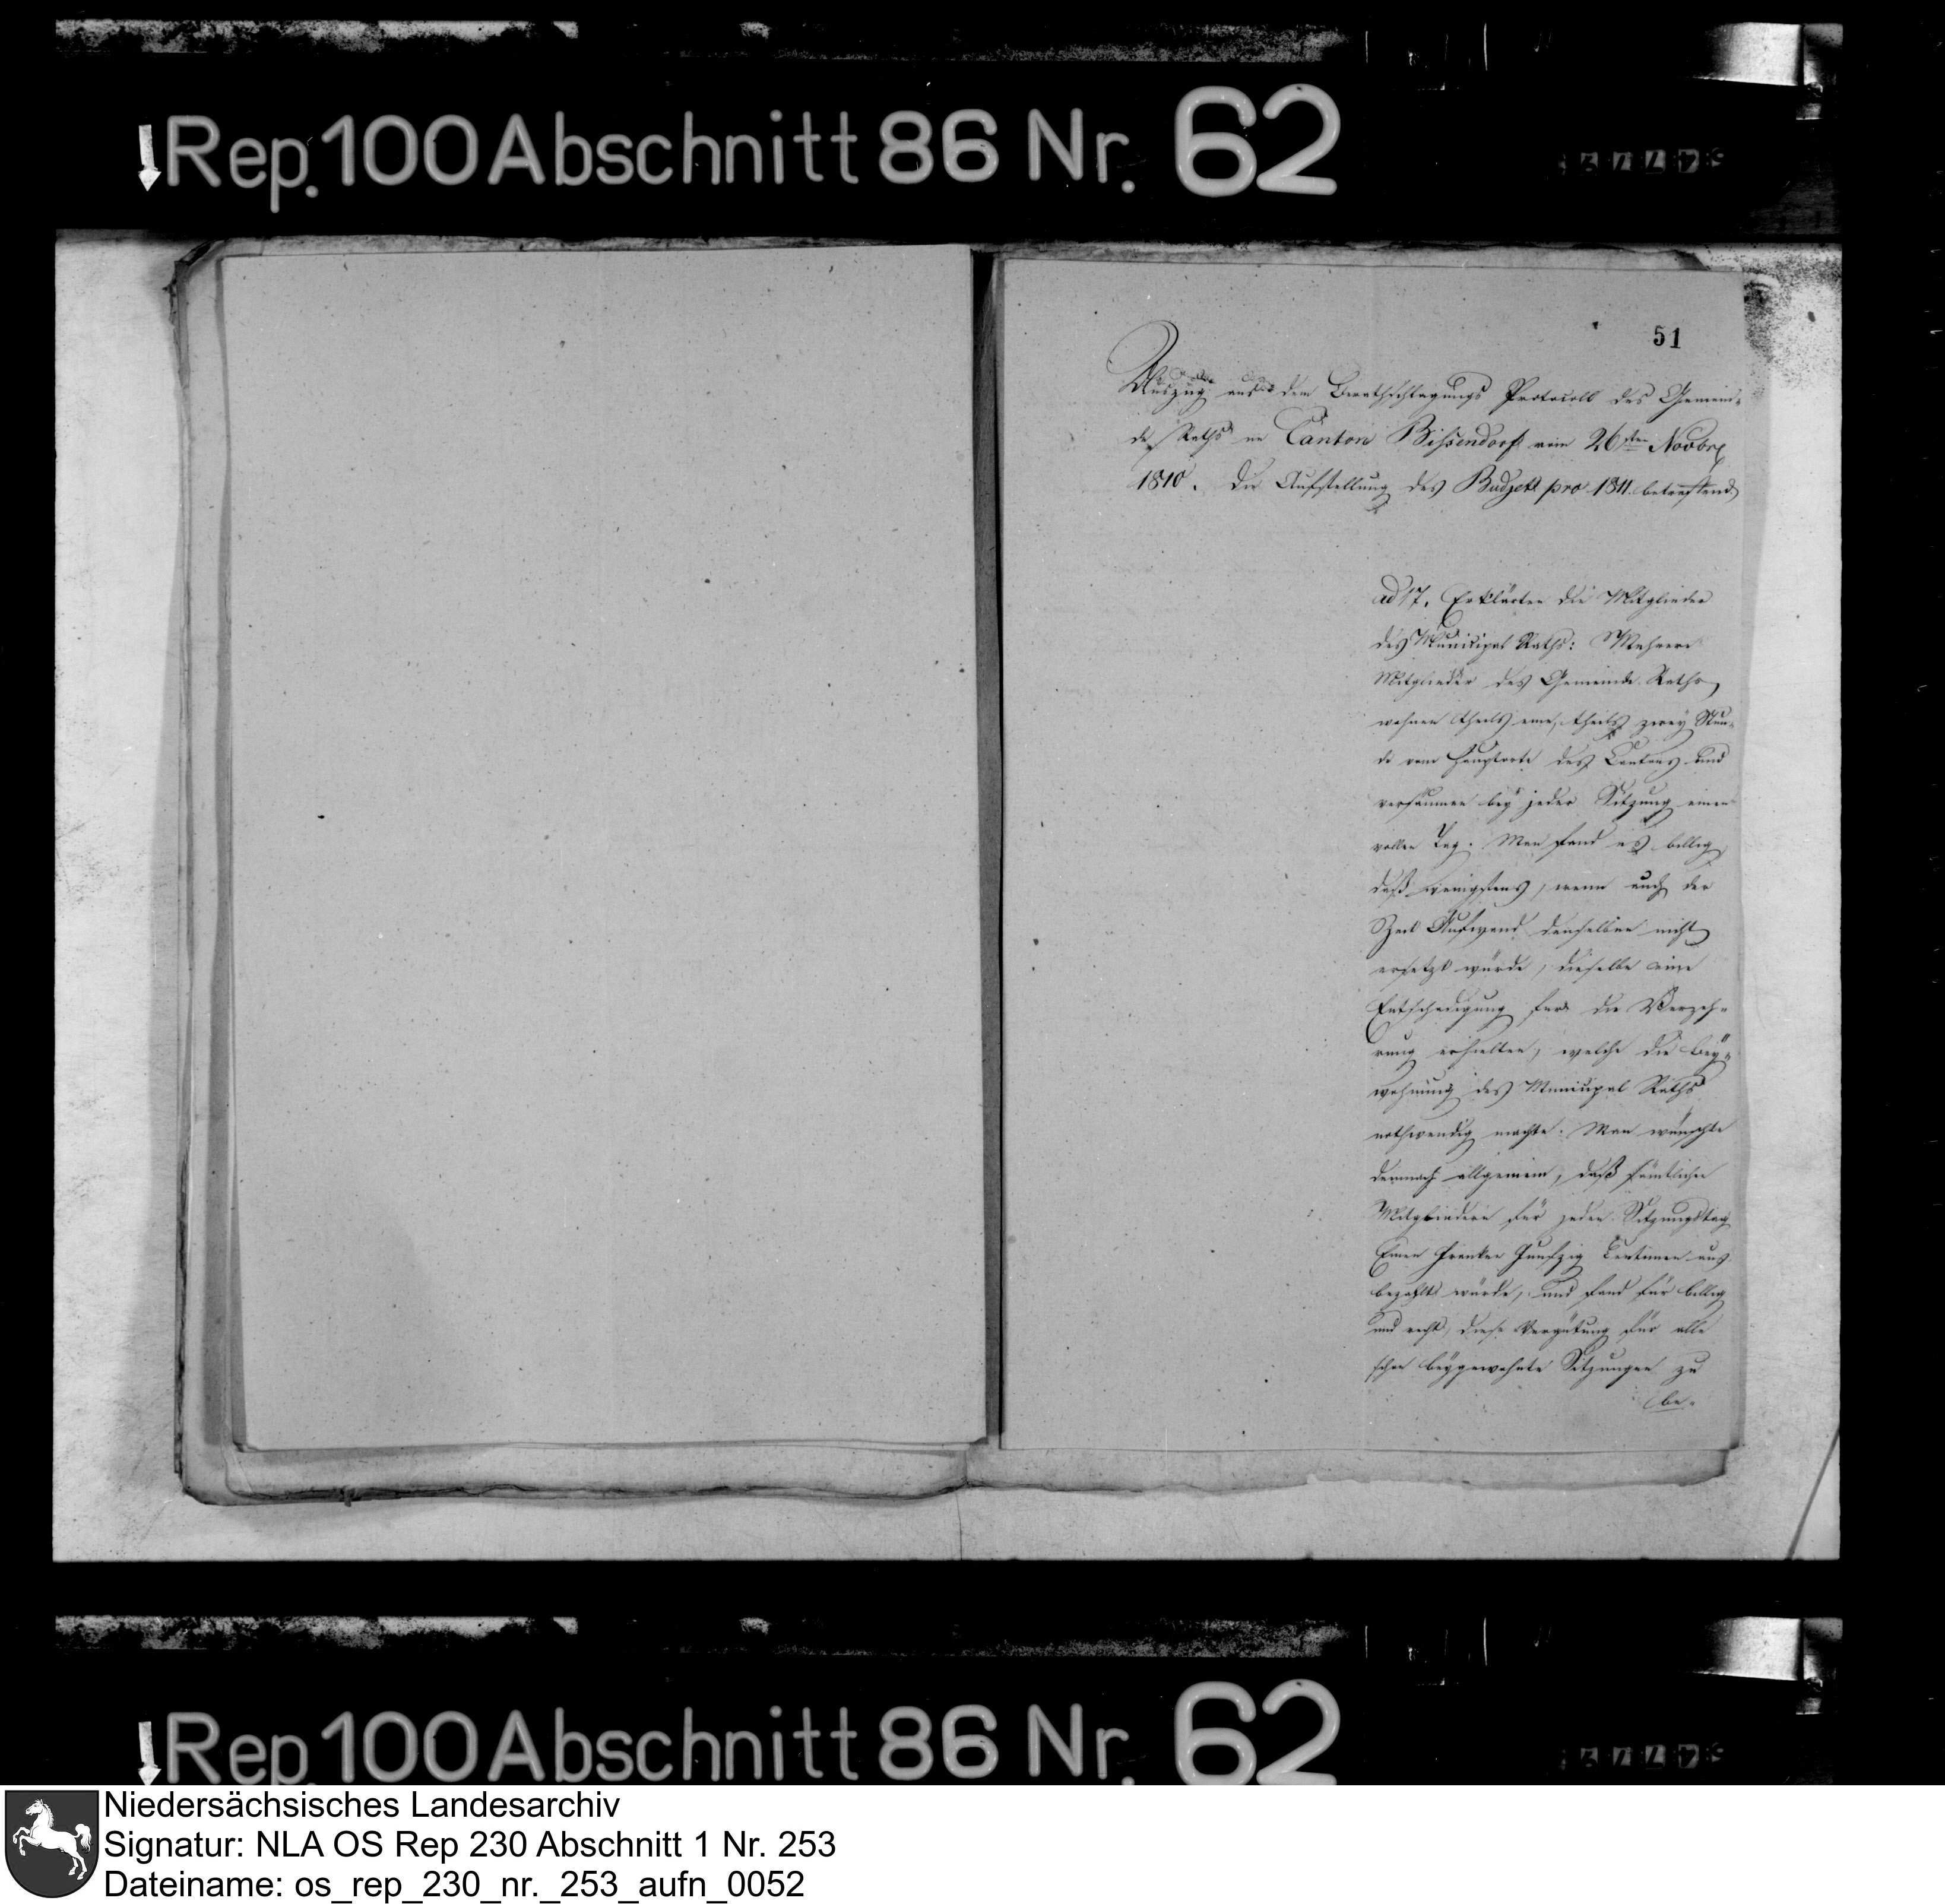 Rep. 100 Abschnitt 86 Nr. 62
51
Auszug aus dem Berathschlagungs Protocoll des Gemein-
de Raths im Canton Bissendorf vom 26sten Novbr
1810. Die Aufstellung des Budjets pro 1811 betreffend
ad 17. Erklärten die Mitglieder
des Municipal Raths: Mehrere
Mitglieder des Gemeinde Raths
wohnen theils eine, theils zwey Stun-
de vom Hauptorte des Cantons und
versäumen bey jeder Sitzung einen
vollen Tag. Man fand es billig
daß wenigstens, wenn auch der
Zeit Aufwand denselben nicht
ersetzt würde, dieselbe eine
Entschädigung für die Verzeh-
rung erhielten, welche die Bey-
wohnung des Municipal Raths
nothwendig machte. Man wünschte
demnach allgemein, daß sämtlichen
Mitgliedern für jeden Sitzungstag
Einen Franken Funfzig Centimen aus
bezahlt würde, und fand für billig
und recht, diese Vergütung für alle
schon beygewohnte Sitzungen zu
be-
Rep. 100 Abschnitt 86 Nr. 62
Niedersächsisches Landesarchiv
Signatur: NLA OS Rep 230 Abschnitt 1 Nr. 253
Dateiname: os_rep_230_nr._253_aufn_0052